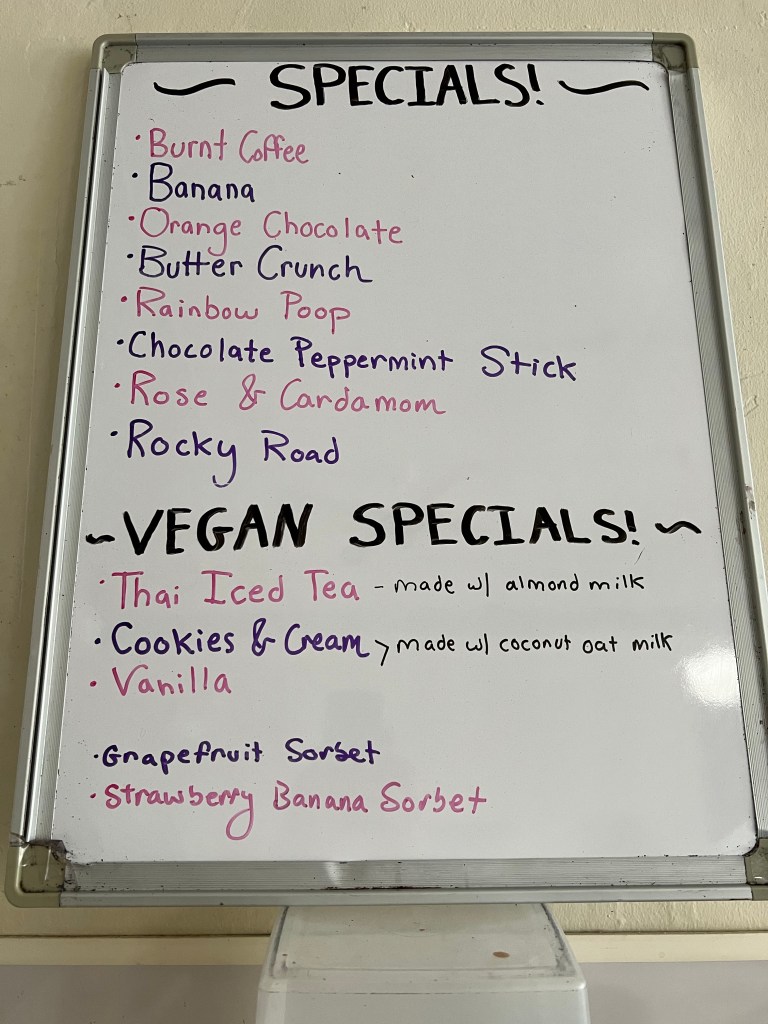 ~ SPECIALS! ~
• Burnt Coffee
• Banana
• Orange Chocolate
• Butter Crunch
• Rainbow Poop
• Chocolate Peppermint Stick
• Rose & Cardamom
• Rocky Road
~ VEGAN SPECIALS! ~
• Thai Iced Tea - made w/ almond milk
• Cookies & Cream > made w/ coconut oat milk
• Vanilla
• Grapefruit Sorbet
• Strawberry Banana Sorbet